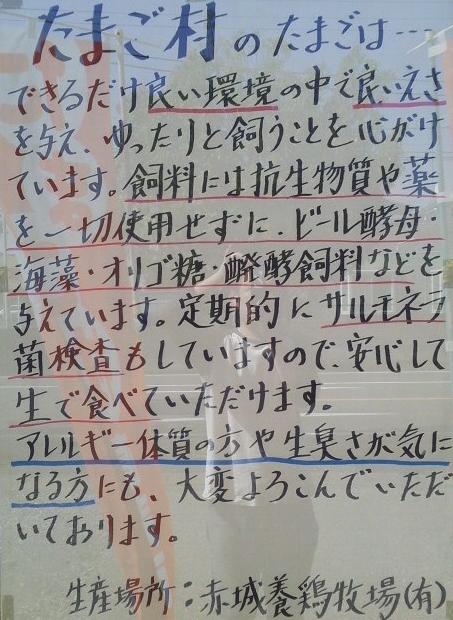 たまご村のたまごは…
できるだけ良い環境の中で良いえさ
を与え、ゆったりと飼うことを心がけ
ています。飼料には抗生物質や薬
を一切使用せずに、ビール酵母・
海藻・オリゴ糖・醗酵飼料などを
与えています。定期的にサルモネラ
菌検査もしていますので、安心して
生で食べていただけます。
アレルギー体質の方や生臭さが気に
なる方にも、大変よろこんでいただ
いております。
生産場所：赤城養鶏牧場(有)